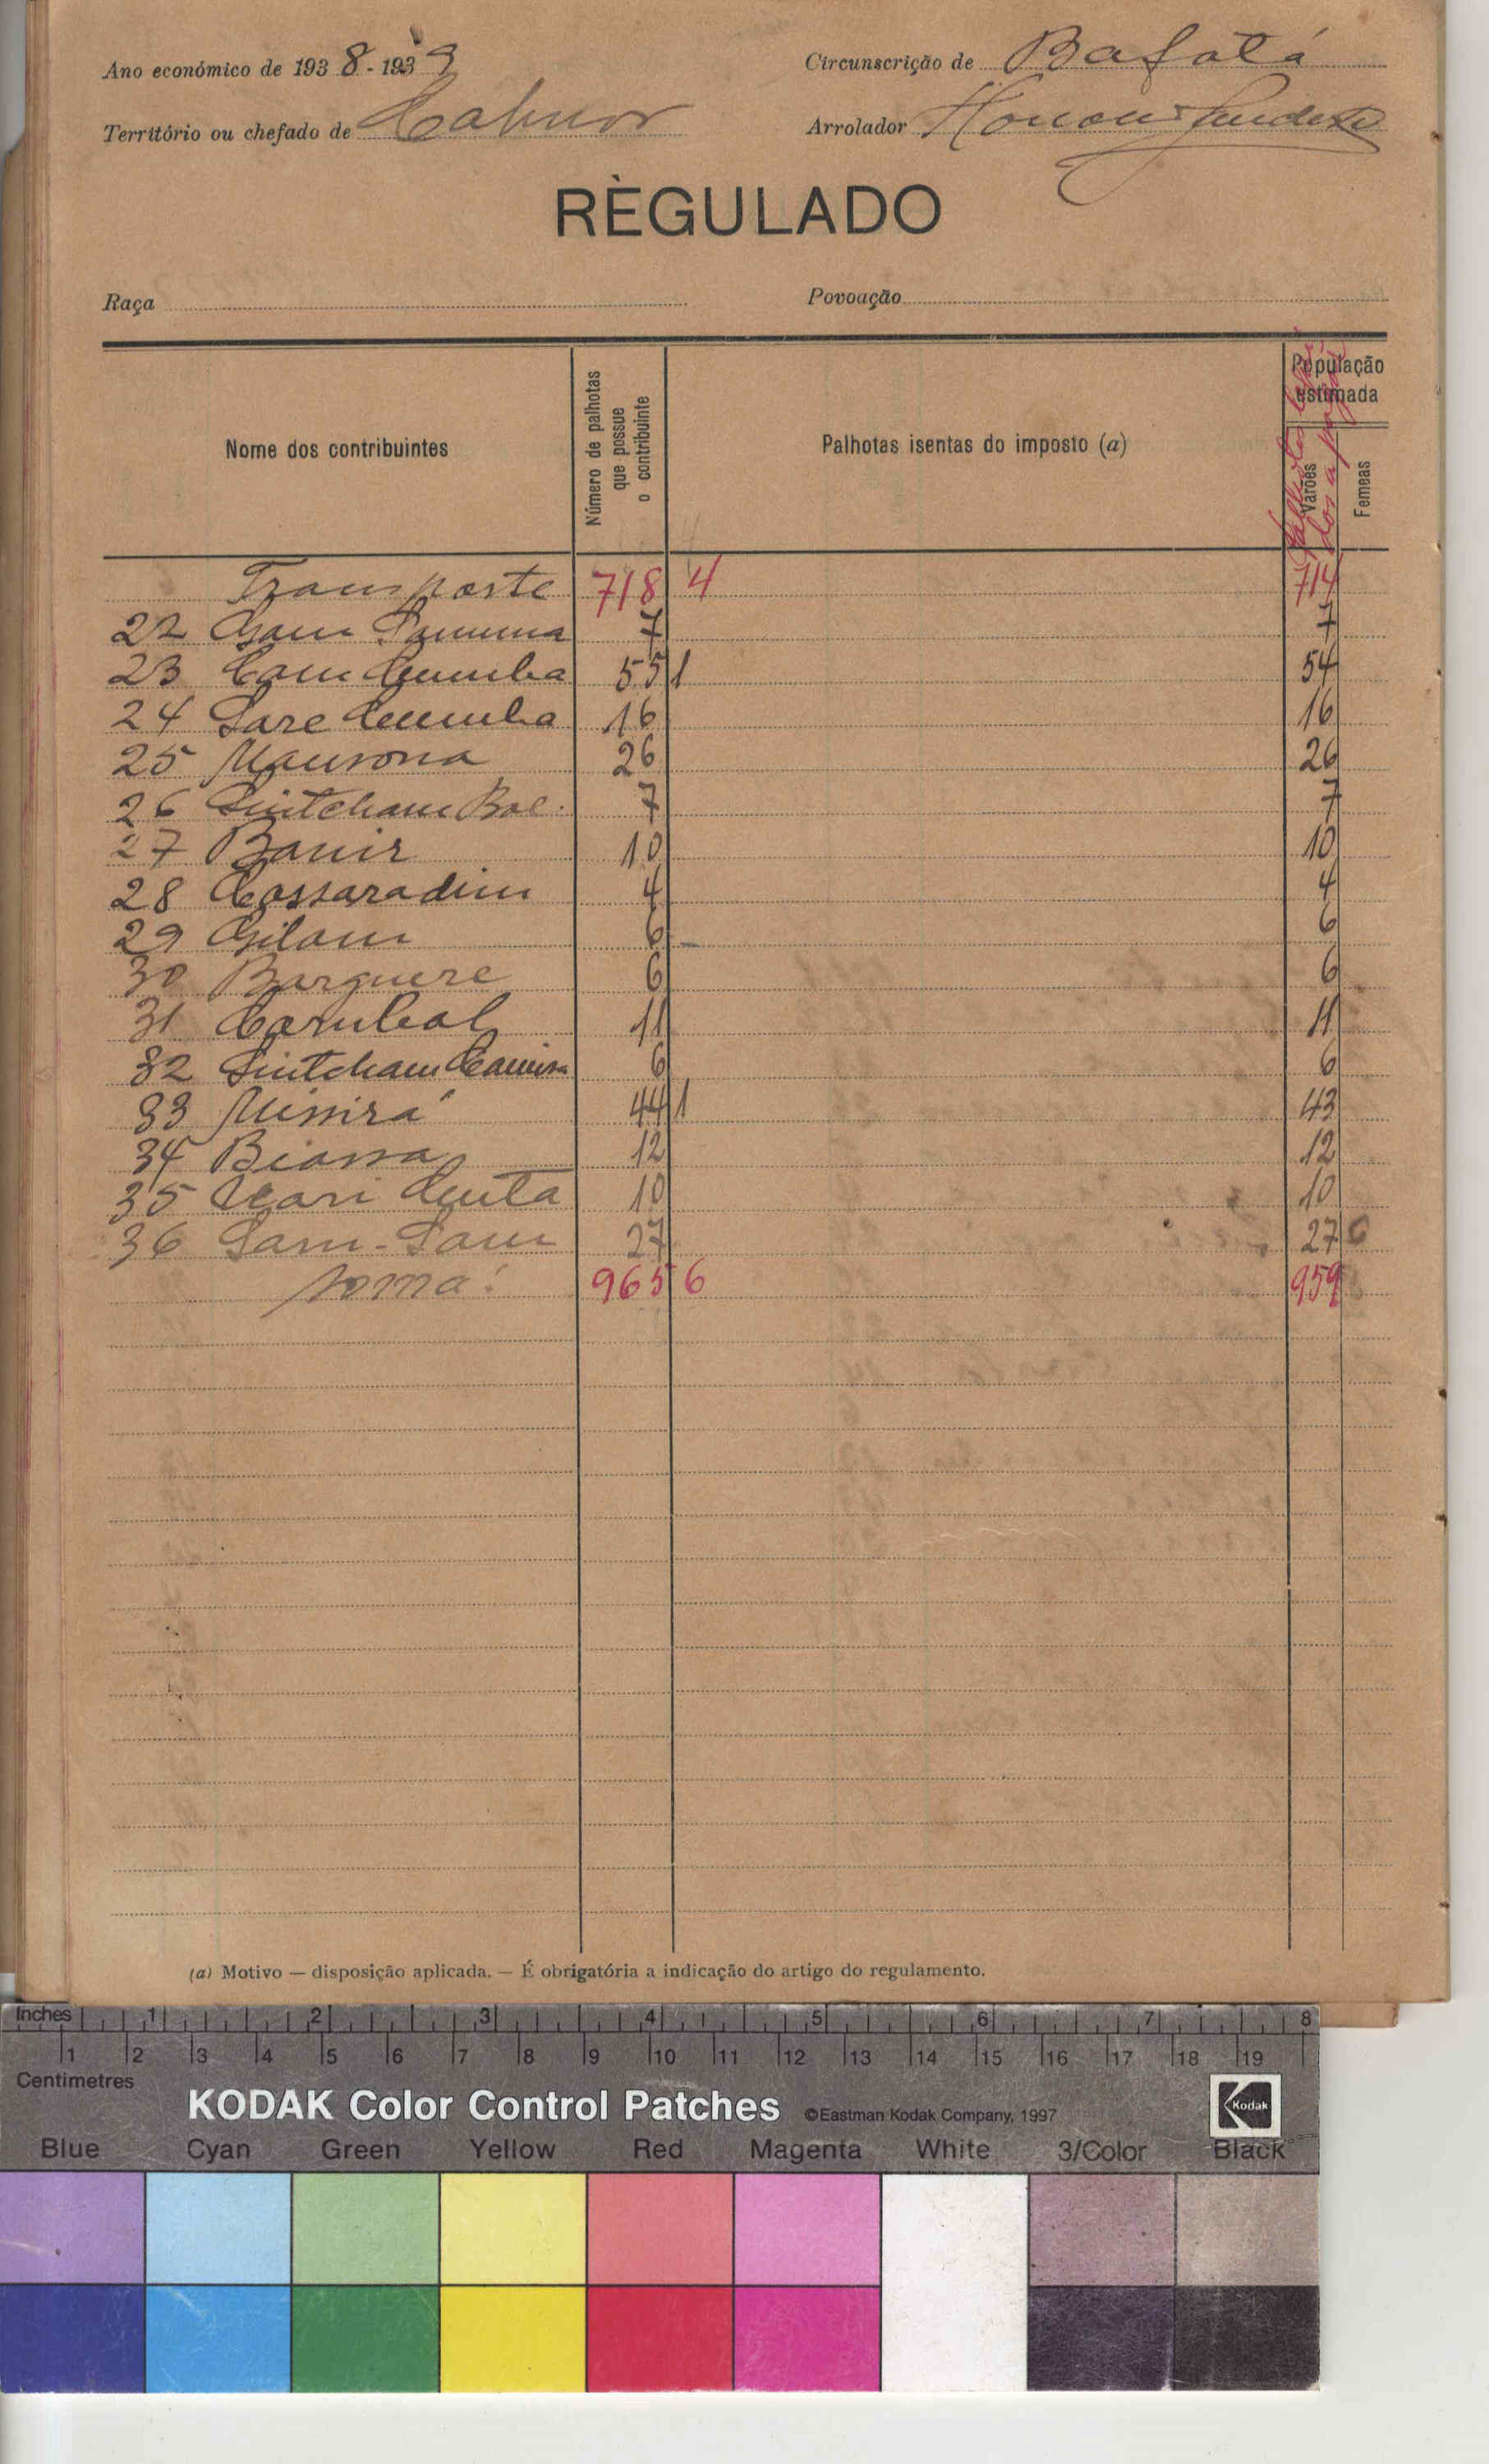 Ano económico de 1938-1939
Circunscrição de Bafatá
Território ou chefado de
Arrolador
RÈGULADO
Raça
Povoação
Nome dos contribuintes
Número de palhotas que possue o contribuinte
Palhotas isentas do imposto (a)
População estimada
Varões
Femeas
Transporte 718 4 714
22 7 7
23 55 1 54
24 Sare 16 16
25 Mansona 26 26
26 Sintcham Bol. 7 7
27 Banir 10 10
28 Cossaradim 4 4
29 Gilam 6 - 6
30 Barguere 6 6
31 Corubal 11 11
32 Sintcham 6 6
33 Missirá 44 1 43
34 Biassa 12 12
35 10 10
36 Sam-Sam 27 27
Soma: 965 6 959
(a) Motivo — disposição aplicada. — É obrigatória a indicação do artigo do regulamento.
Inches 1 2 3 4 5 6 7 8
1 2 3 4 5 6 7 8 9 10 11 12 13 14 15 16 17 18 19
Centimetres
KODAK Color Control Patches ©Eastman Kodak Company, 1997 Kodak
Blue Cyan Green Yellow Red Magenta White 3/Color Black